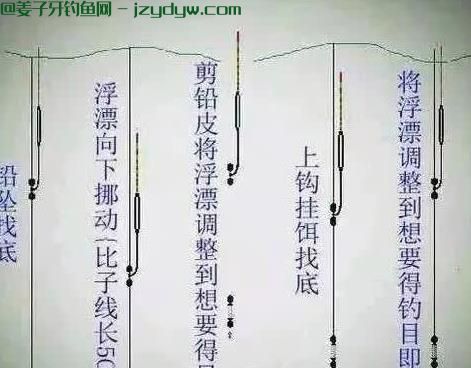 @姜子牙钓鱼网 - jzydyw.com
铅坠找底
浮漂向下挪动(比子线长50
剪铅皮将浮漂调整到想要得
上钩挂饵找底
将浮漂调整到想要得钓目即